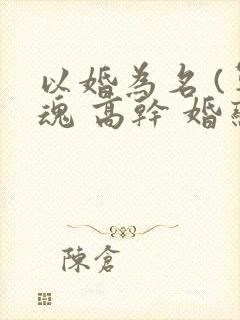 以婚為名(
魂 高幹 婚
陳倉